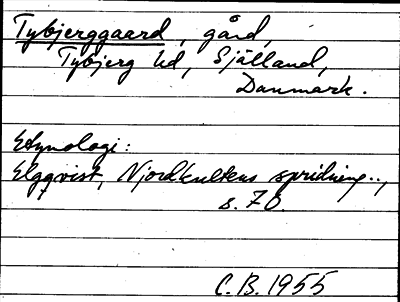 Tybjerggaard, gård,
Tybjerg hd, Själland,
Danmark.
Etymologi:
Elgqvist, Njordkultens spridning..,
s. 70.
C.B. 1955